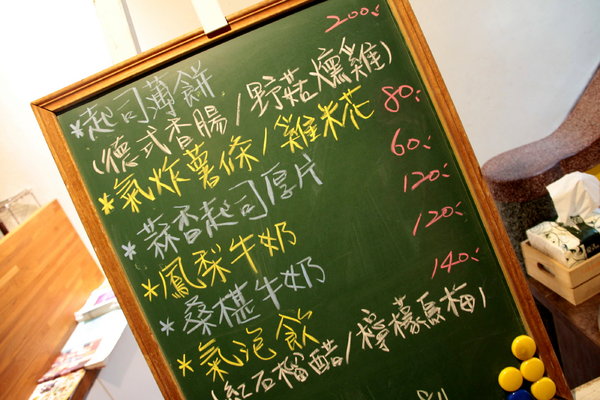 *起司薄餅 200.-
(德式香腸/野菇燻雞)
*氣炸薯條/雞米花 80.-
*蒜香起司厚片 60.-
*鳳梨牛奶 120.-
*桑椹牛奶 120.-
*氣泡飲 140.-
(紅石榴醋/檸檬烏梅)